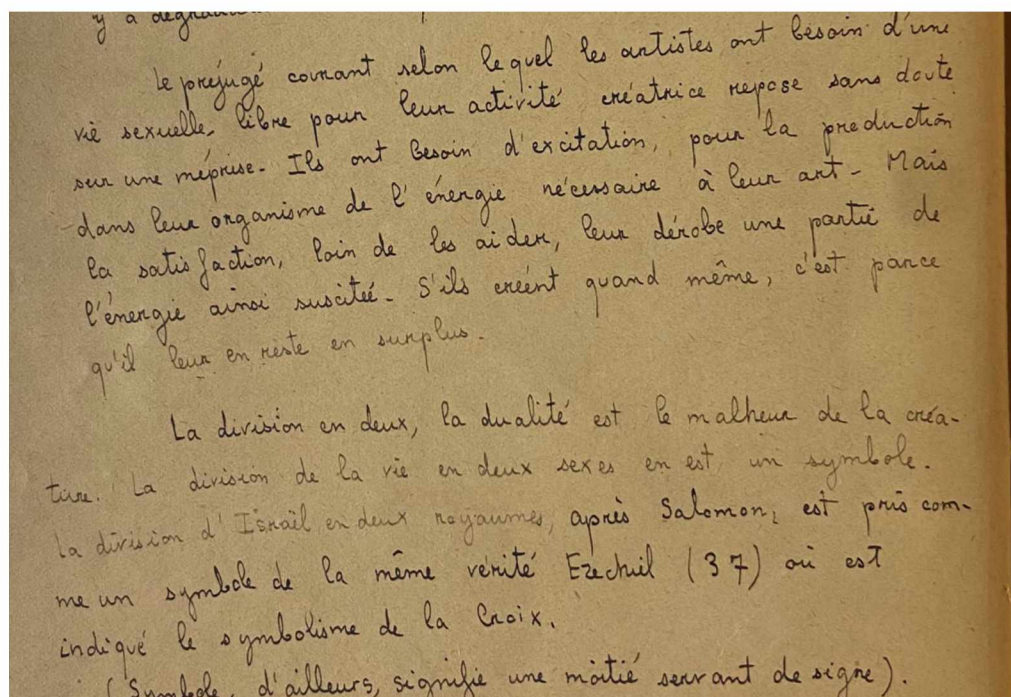 y a
Le préjugé courant selon lequel les artistes ont besoin d'une
vie sexuelle libre pour leur activité créatrice repose sans doute
sur une méprise. Ils ont besoin d'excitation, pour la production
dans leur organisme de l'énergie nécessaire à leur art - Mais
la satisfaction, loin de les aider, leur dérobe une partie de
l'énergie ainsi suscitée. S'ils créent quand même, c'est parce
qu'il leur en reste en surplus.
La division en deux, la dualité est le malheur de la créa-
ture. La division de la vie en deux sexes en est un symbole.
La division d'Israël en deux royaumes, après Salomon, est pris com-
me un symbole de la même vérité Ezechiel (37) où est
indiqué le symbolisme de la Croix.
(Symbole, d'ailleurs, signifie une moitié servant de signe).